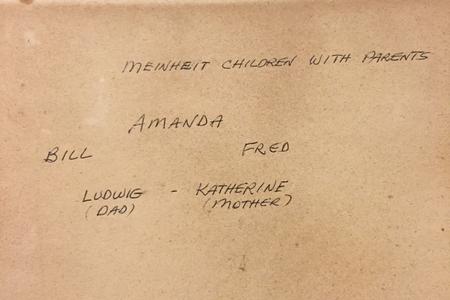 MEINHEIT CHILDREN WITH PARENTS
AMANDA
BILL FRED
LUDWIG - KATHERINE
(DAD) (MOTHER)